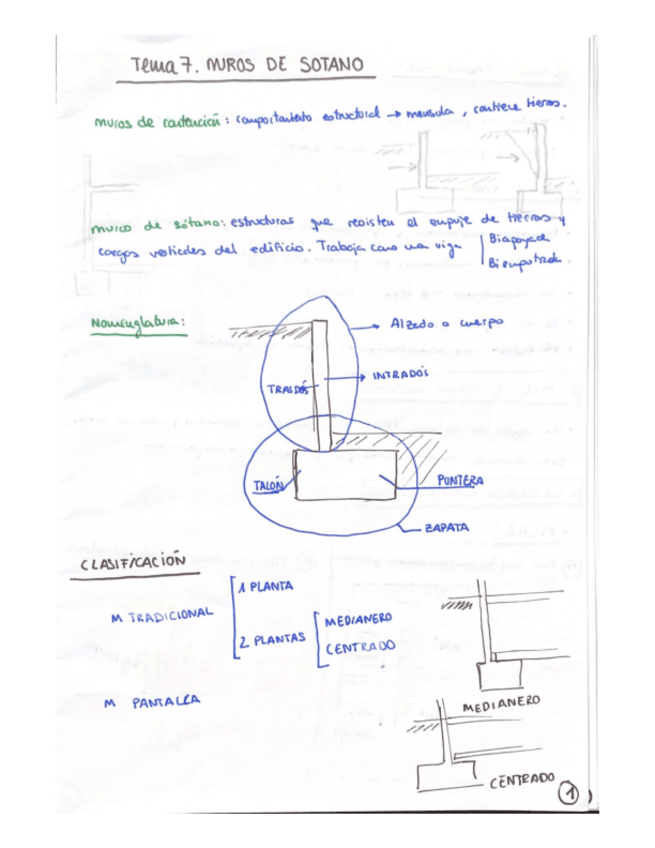 Tema 7. MUROS DE SOTANO
muros de contención: comportamiento estructural → mensula, contiene tierras.
muro de sótano: estructuras que resisten el empuje de tierras y
cargas verticales del edificio. Trabaja como una viga
Biapoyada
Biempotrada
Nomenglatura:
Alzado o cuerpo
TRASDÓS
INTRADÓS
TALÓN
PUNTERA
ZAPATA
CLASIFICACIÓN
M TRADICIONAL
1 PLANTA
2 PLANTAS
MEDIANERO
CENTRADO
M PANTALLA
MEDIANERO
CENTRADO
1